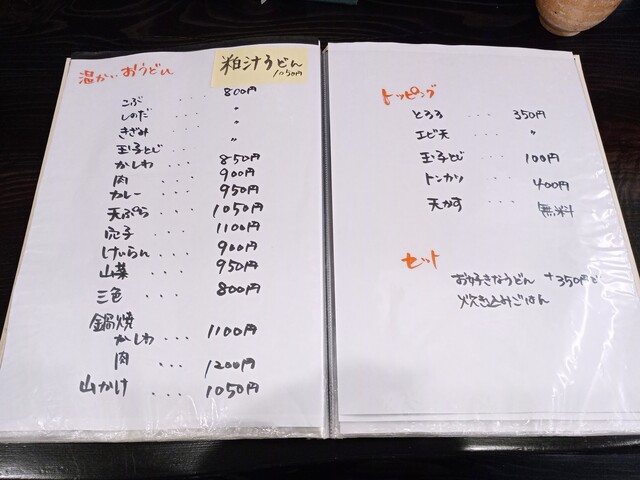 温かいおうどん
粕汁うどん
1050円
こぶ ... 800円
しのだ ... 〃
きざみ ... 〃
玉子とじ ... 〃
かしわ ... 850円
肉 ... 900円
カレー ... 950円
天ぷら ... 1050円
穴子 ... 1100円
けいらん ... 900円
山菜 ... 950円
三色 ... 800円
鍋焼
かしわ ... 1100円
肉 ... 1200円
山かけ ... 1050円
トッピング
とろろ ... 350円
エビ天 ... 〃
玉子とじ ... 100円
トンカツ ... 400円
天かす ... 無料
セット
お好きなうどん +350円で
炊き込みごはん